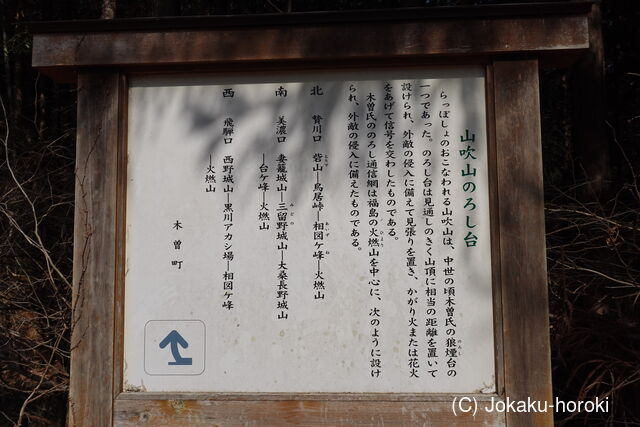 山吹山のろし台
らっぽしょのおこなわれる山吹山は、中世の頃木曽氏の狼煙台の
一つであった。のろし台は見通しのきく山頂に相当の距離を置いて
設けられ、外敵の侵入に備えて見張りを置き、かがり火または花火
をあげて信号を交わしたものである。
木曽氏ののろし通信網は福島の火燃山を中心に、次のように設け
られ、外敵の侵入に備えたものである。
北 贄川口 砦山―鳥居峠―相図ヶ峰―火燃山
南 美濃口 妻籠城山―三留野城山―大桑長野城山
―台ケ峰―火燃山
西 飛騨口 西野城山―黒川アカシ場―相図ケ峰
―火燃山
木曽町
(C) Jokaku-horoki